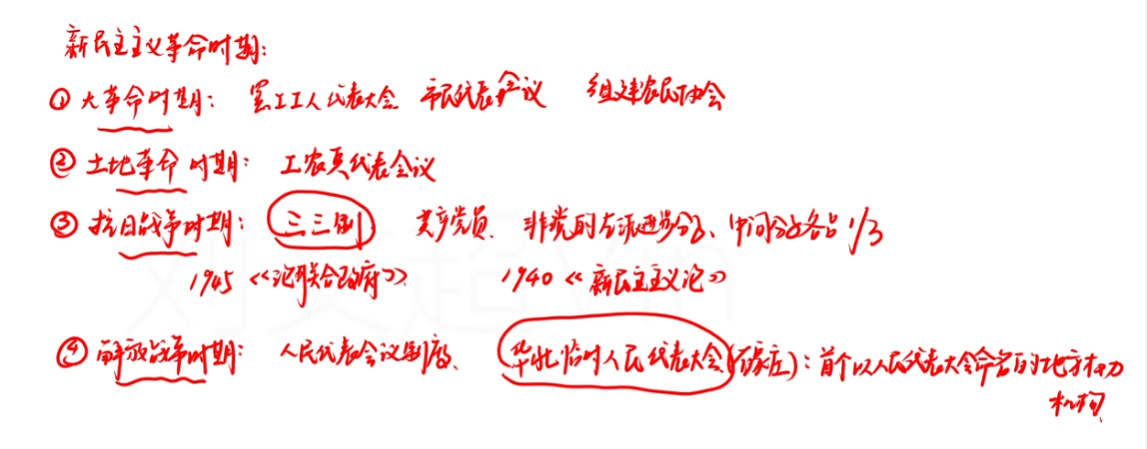 新民主主义革命时期:
① 大革命时期: 罢工工人代表大会 市民代表会议 组建农民协会
② 土地革命时期: 工农兵代表会议
③ 抗日战争时期: 三三制 共产党员、非党的左派进步分子、中间分子各占 1/3
1945 《论联合政府》 1940 《新民主主义论》
④ 解放战争时期: 人民代表会议制度、 华北临时人民代表大会(石家庄): 首个以人民代表大会命名的地方权力
机构